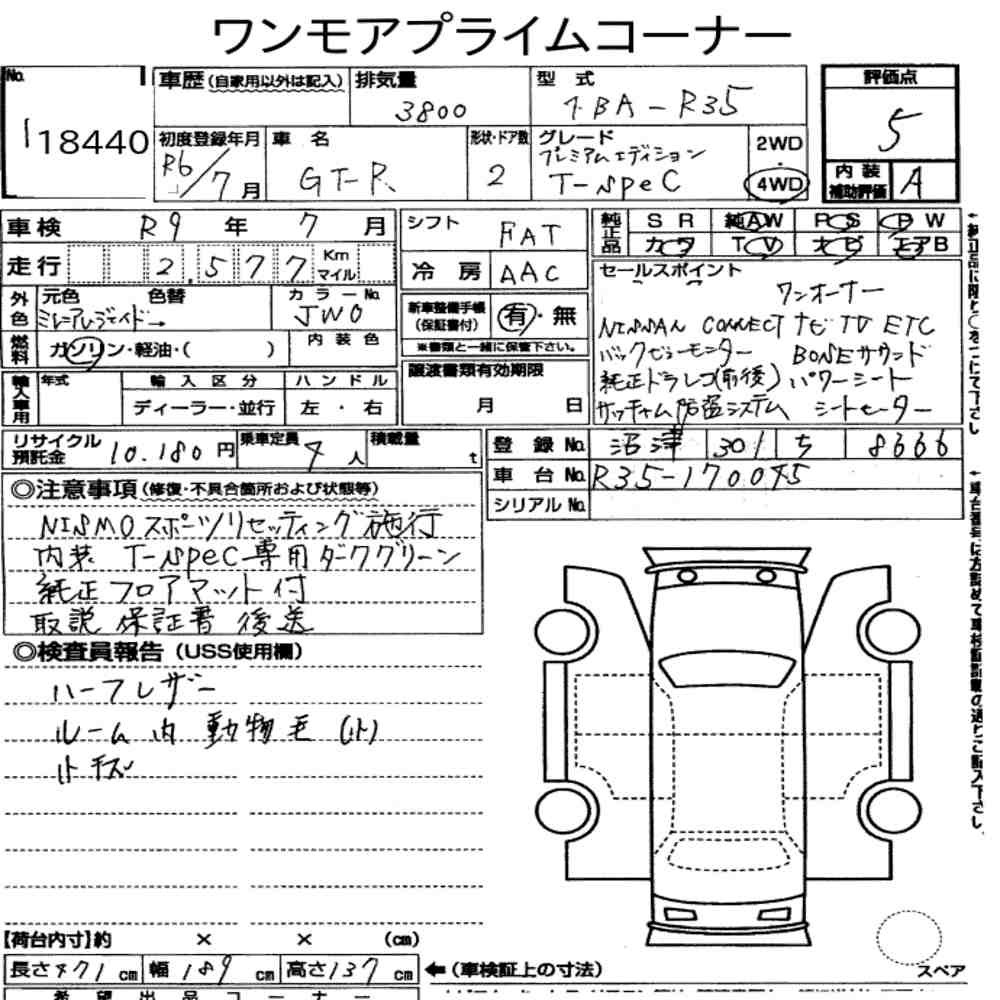 ワンモアプライムコーナー
No.
118440
車歴 (自家用以外は記入)
排気量
3800
型 式
7BA-R35
評価点
5
内装補助評価 A
初度登録年月
R6/7月
車 名
GT-R
形状・ドア数
2
グレード
プレミアムエディション
T-speC
2WD
・
4WD
車検 R9年 7月
走行 2.577 Km マイル
外色 元色 色替
ミレニアムジェイド→
カラーNo.
JW0
燃料 ガソリン・軽油・( )
内装色
輸入車用 年式
輸入区分
ディーラー・並行
ハンドル
左・右
シフト FAT
冷房 AAC
新車整備手帳(保証書付) 有・無
※書類と一緒に保管下さい。
譲渡書類有効期限
月 日
純正品 SR 純AW PS PW
カワ TV ナビ エアB
セールスポイント
ワンオーナー
NISSAN CONNECT ナビTV ETC
バックビューモニター BOSEサウンド
純正ドラレコ(前後) パワーシート
サッチャム防盗システム シートヒーター
リサイクル預託金 10.180円
乗車定員 4人
積載量 t
登録No. 沼津 301 ち 8666
車台No. R35-170045
シリアルNo.
◎注意事項 (修復・不具合箇所および状態等)
NISMOスポーツリセッティング施行
内装 T-speC専用ダークグリーン
純正フロアマット付
取説 保証書 後送
◎検査員報告 (USS使用欄)
ハーフレザー
ルーム内 動物毛(小)
小キズ
【荷台内寸】約 × × (cm)
長さ471cm 幅189cm 高さ137cm
←(車検証上の寸法)
スペア
希望出品コーナー